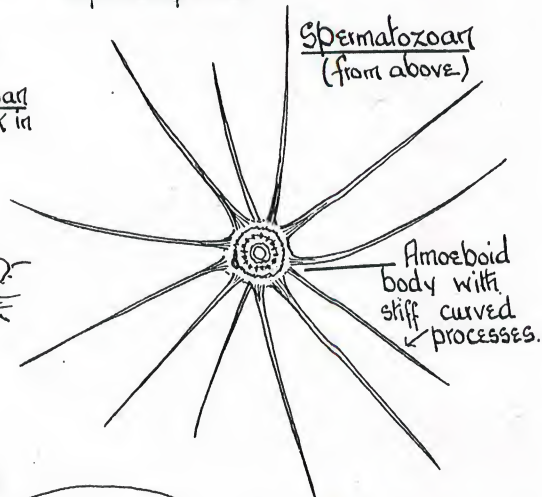 Spermatozoan
(from above)
Amoeboid
body with
stiff curved
processes.